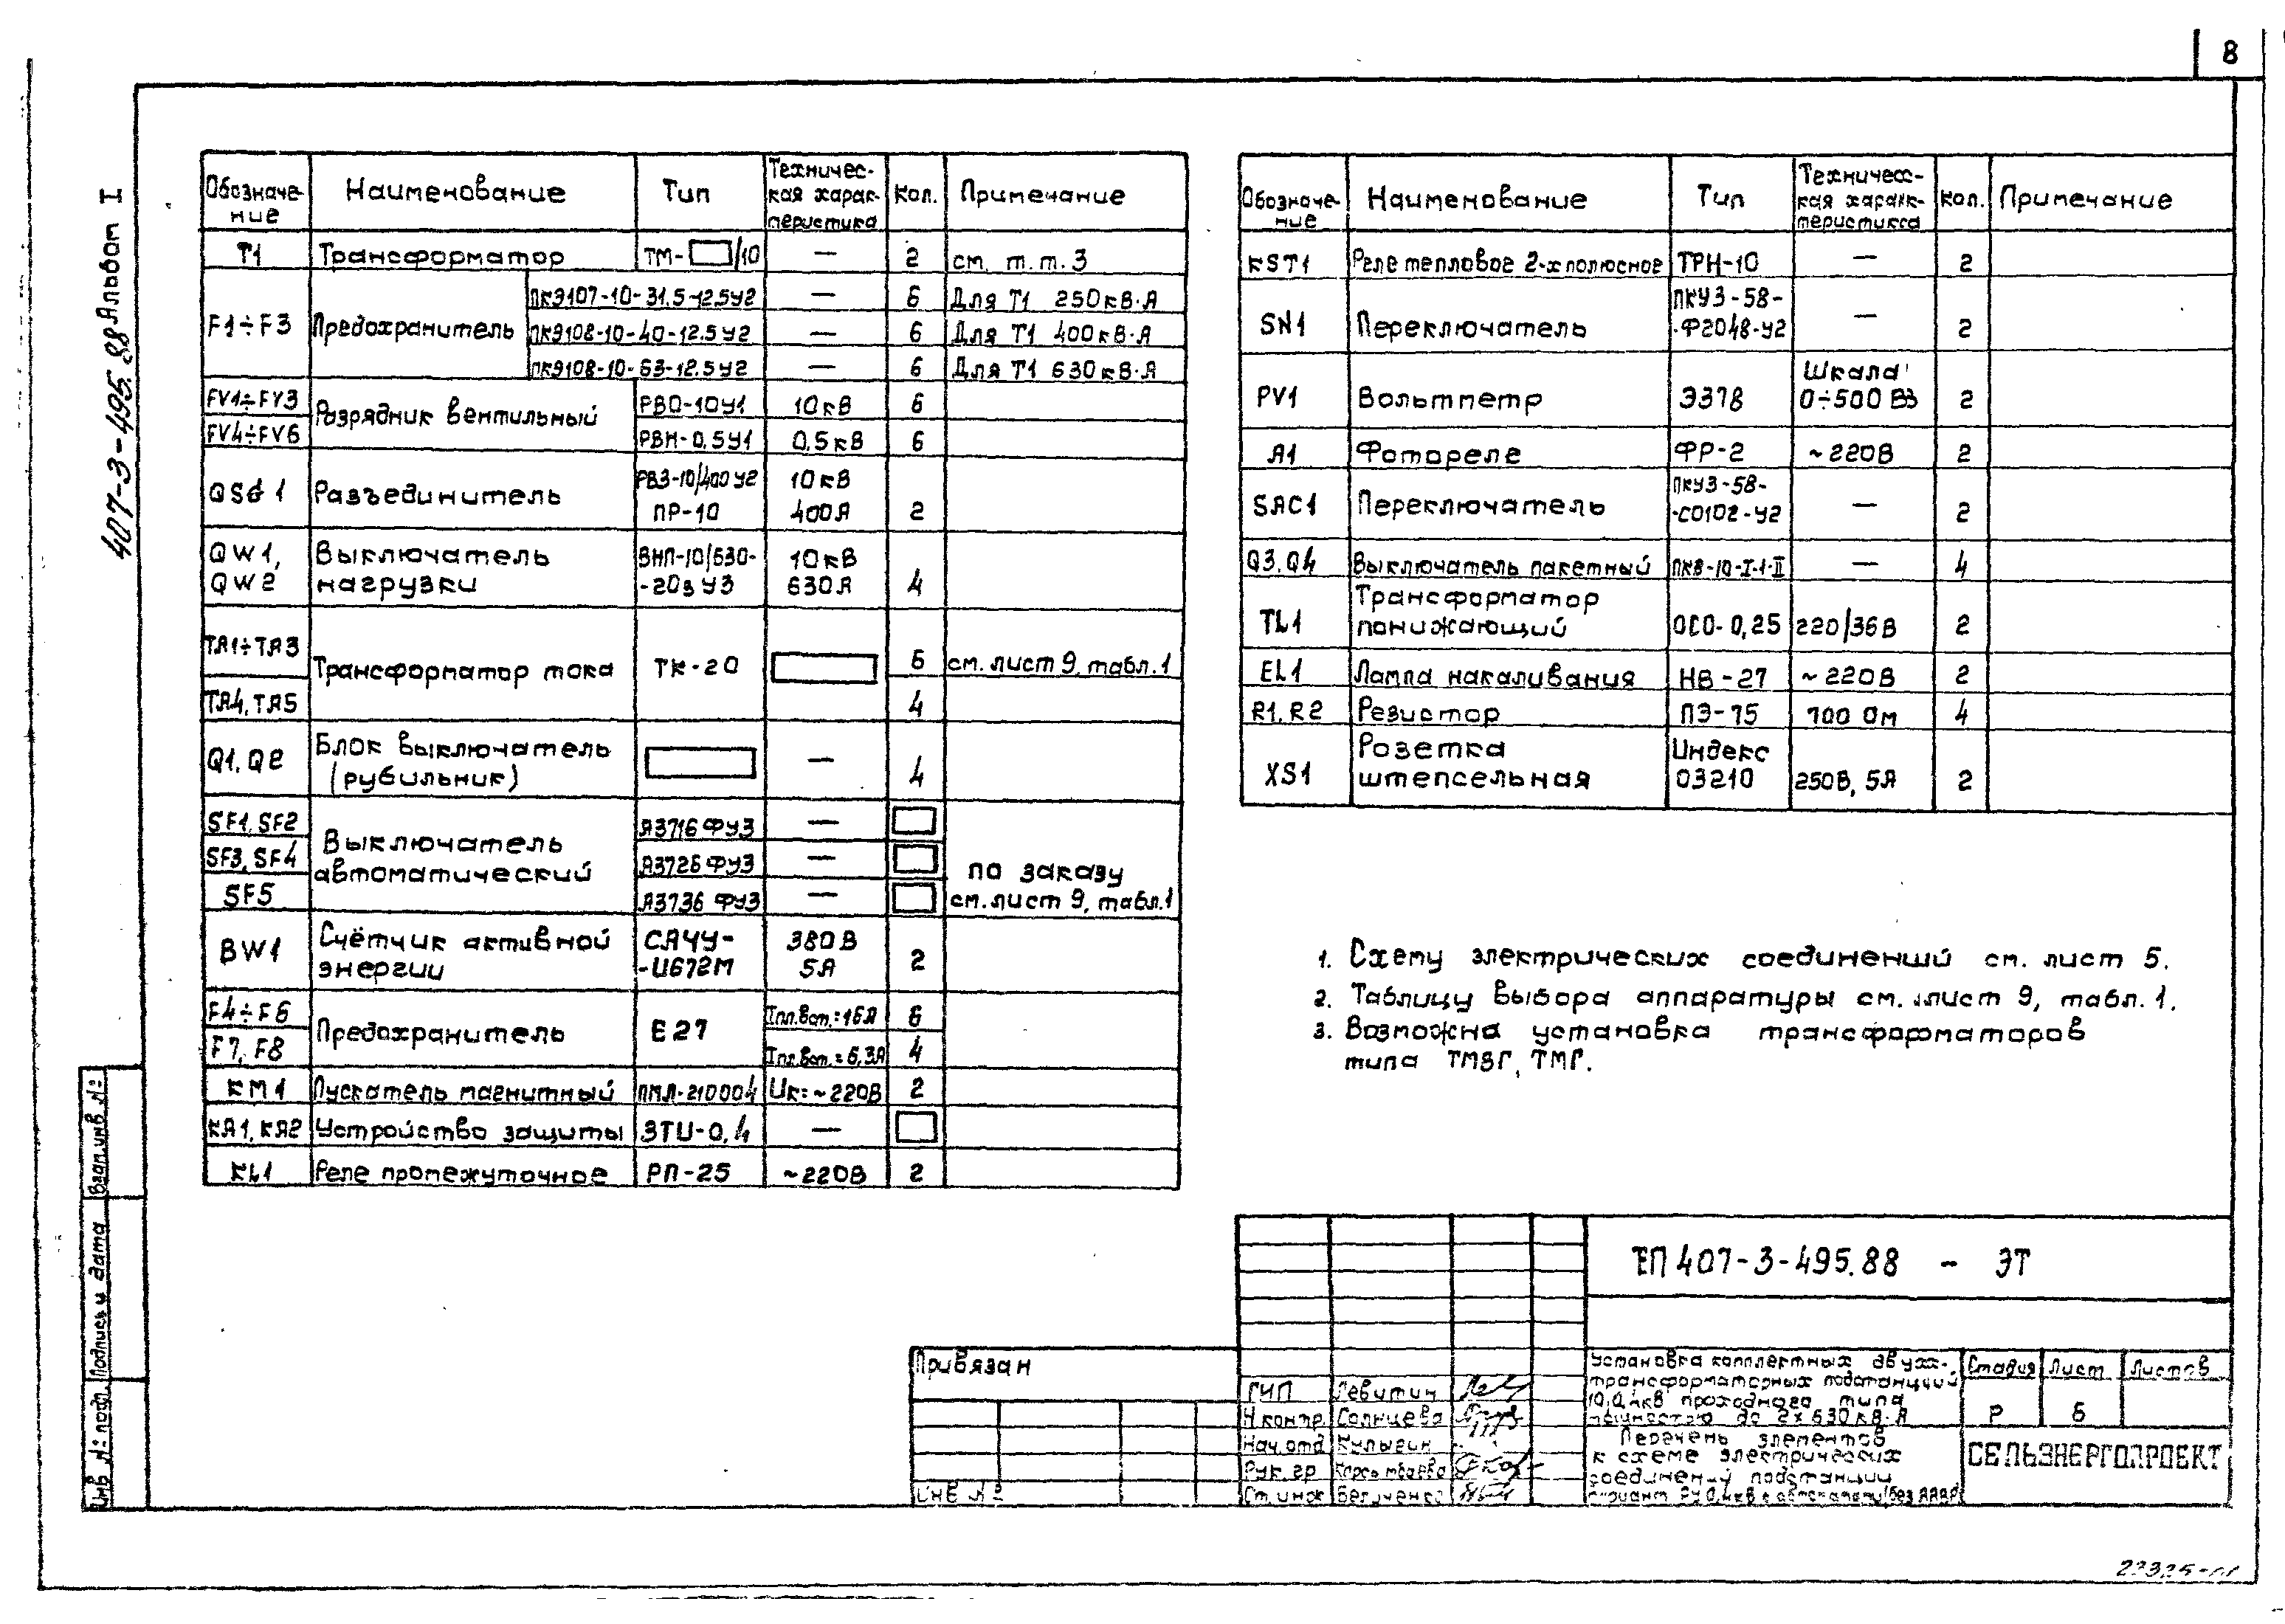 8
407-3-495.88 Альбом I
Обозначение Наименование Тип Техническая характеристика Кол. Примечание
Т1 Трансформатор ТМ- /10 — 2 см. т.т.3
F1÷F3 Предохранитель ПКЭ107-10-31.5-12.5У2 — 6 Для Т1 250кВ·А
ПКЭ108-10-40-12.5У2 — 6 Для Т1 400кВ·А
ПКЭ108-10-63-12.5У2 — 6 Для Т1 630кВ·А
FV1÷FV3 Разрядник вентильный РВО-10У1 10кВ 6
FV4÷FV6 РВН-0,5У1 0,5кВ 6
QSG1 Разъединитель РВЗ-10/400У2 10кВ
ПР-10 400А 2
QW1, Выключатель ВНП-10/630- 10кВ
QW2 нагрузки -20зУ3 630А 4
ТА1÷ТА3 Трансформатор тока ТК-20 6 см. лист 9, табл.1
ТА4, ТА5 4
Q1, Q2 Блок выключатель
(рубильник) — 4
SF1, SF2 Выключатель автоматический А3716ФУ3 —
SF3, SF4 А3726ФУ3 — по заказу
SF5 А3736ФУ3 — см. лист 9, табл.1
BW1 Счётчик активной САЧУ- 380В
энергии -И672М 5А 2
F4÷F6 Предохранитель Е27 Iпл.вст.=16А 6
F7, F8 Iпл.вст.=6,3А 4
КМ1 Пускатель магнитный ПМЛ-210004 Uк=~220В 2
КА1, КА2 Устройство защиты ЗТИ-0,4 —
KL1 Реле промежуточное РП-25 ~220В 2
Обозначение Наименование Тип Техническая характеристика Кол. Примечание
KST1 Реле тепловое 2-х полюсное ТРН-10 — 2
SN1 Переключатель ПКУ3-58-
-Ф2048-У2 — 2
PV1 Вольтметр Э378 Шкала
0÷500 В 2
А1 Фотореле ФР-2 ~220В 2
SAC1 Переключатель ПКУ3-58-
-С0102-У2 — 2
Q3, Q4 Выключатель пакетный ПКВ-10-I-1-II — 4
TL1 Трансформатор
понижающий ОСО-0,25 220/36В 2
EL1 Лампа накаливания НВ-27 ~220В 2
R1, R2 Резистор ПЭ-75 100 Ом 4
XS1 Розетка Индекс
штепсельная 03210 250В, 5А 2
1. Схему электрических соединений см. лист 5.
2. Таблицу выбора аппаратуры см. лист 9, табл.1.
3. Возможна установка трансформаторов
типа ТМВГ, ТМГ.
ТП 407-3-495.88 - ЭТ
Установка комплектных двух-
трансформаторных подстанций
10/0,4кВ проходного типа
мощностью до 2х630кВ·А
Стадия Лист Листов
Р 6
Перечень элементов
к схеме электрических
соединений подстанции
СЕЛЬЭНЕРГОПРОЕКТ
Привязан
Инв №
ГИП Левитин
Н.контр. Солнцева
Нач.отд Кулыгин
Рук.гр
Ст.инж
Взам.инв №
Подпись и дата
Инв № подл.